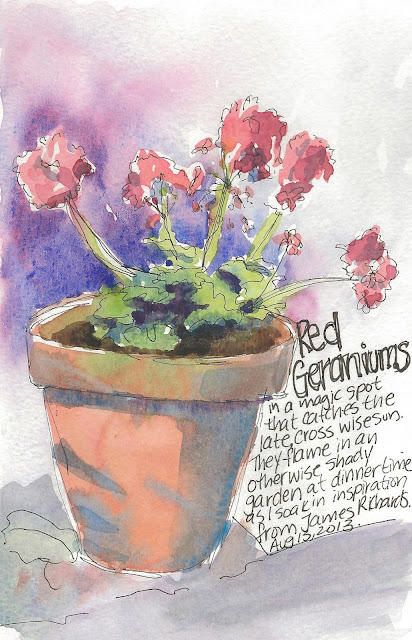 Red
Geraniums
in a magic spot
that catches the
late, cross wise sun.
They flame in an
otherwise shady
garden at dinnertime
as I soak in inspiration
from James Richards.
Aug 13, 2013